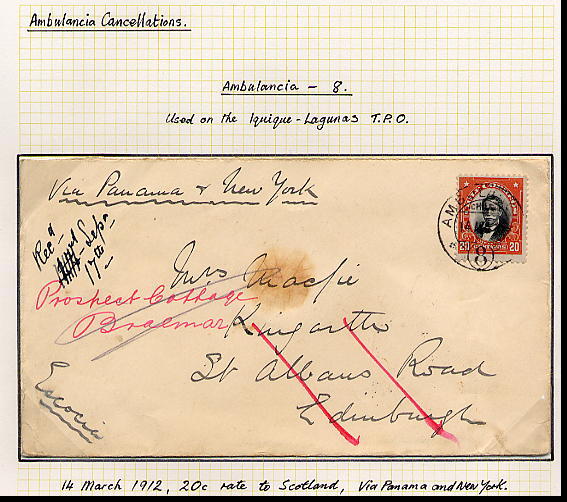 Ambulancia Cancellations.
Ambulancia - 8.
Used on the Iquique-Lagunas T.P.O.
Via Panama & New York
Recd
Sepr
17th
20 CENTAVOS 20
8
Mrs Macfie
Prospect Cottage
Braemar
Kingarth
St Albans Road
Edinburgh
Escocia
14 March 1912, 20c rate to Scotland, Via Panama and New York.